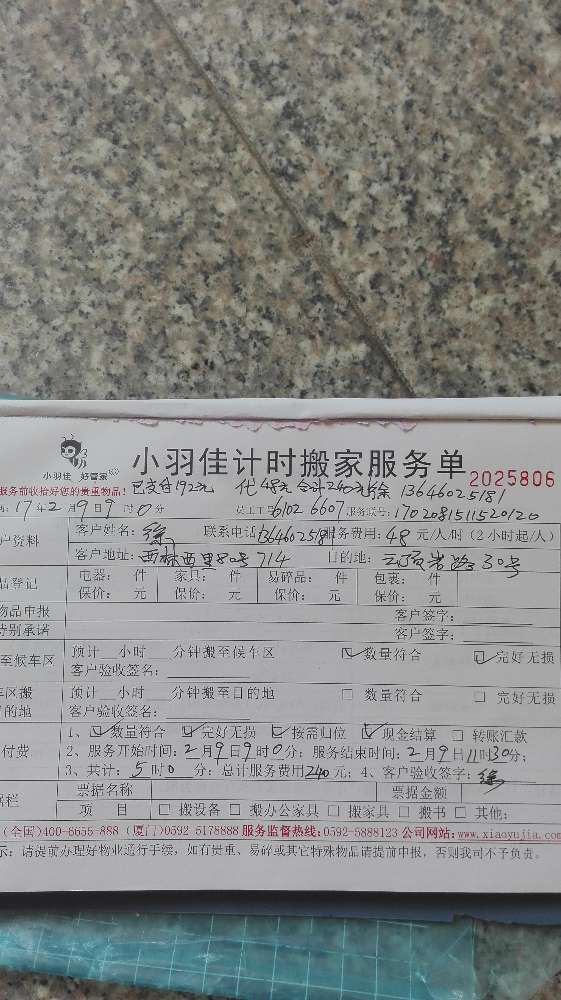 小羽佳 好管家
小羽佳计时搬家服务单 2025806
服务前收拾好您的贵重物品! 已支付192元 化48元 合计240元 徐 13646025181
17年2月9日9时0分 员工工号6102 6607 服务联号:170208151152012​0
户资料 客户姓名:徐 联系电话 13646025181 服务费用:48元/人/时(2小时起/人)
客户地址:西林西里80号714 目的地:云顶岩路30号
出登记 电器: 件 家具: 件 易碎品: 件 包裹: 件
保价: 元 保价: 元 保价: 元 保价: 元
物品申报 客户签字:
特别承诺 客户签字:
至候车区 预计__小时__分钟搬至候车区 ☑数量符合 ☑完好无损
客户验收签名:
车区搬 预计__小时__分钟搬至目的地 □数量符合 □完好无损
的地 客户验收签名:
付费 1、☑数量符合 ☑完好无损 ☑按需归位 ☑现金结算 □转账汇款
2、服务开始时间:2月9日9时0分;服务结束时间:2月9日11时30分;
3、共计:5时0分;总计服务费用240元;4、客户验收签字:徐
票据名称 票据金额
据栏 项 目 □搬设备 □搬办公家具 □搬家具 □搬书 □其他:
(全国)400-6655-888 (厦门)0592 5178888 服务监督热线:0592-5888123 公司网站:www.xiaoyujia.com
示:请提前办理好物业通行手续,如有贵重、易碎或其它特殊物品请提前申报,否则我司不予负责。